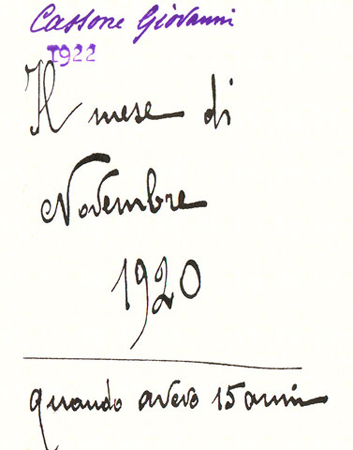 Cassone Giovanni
1922
Il mese di
Novembre
1920
quando avevo 15 anni